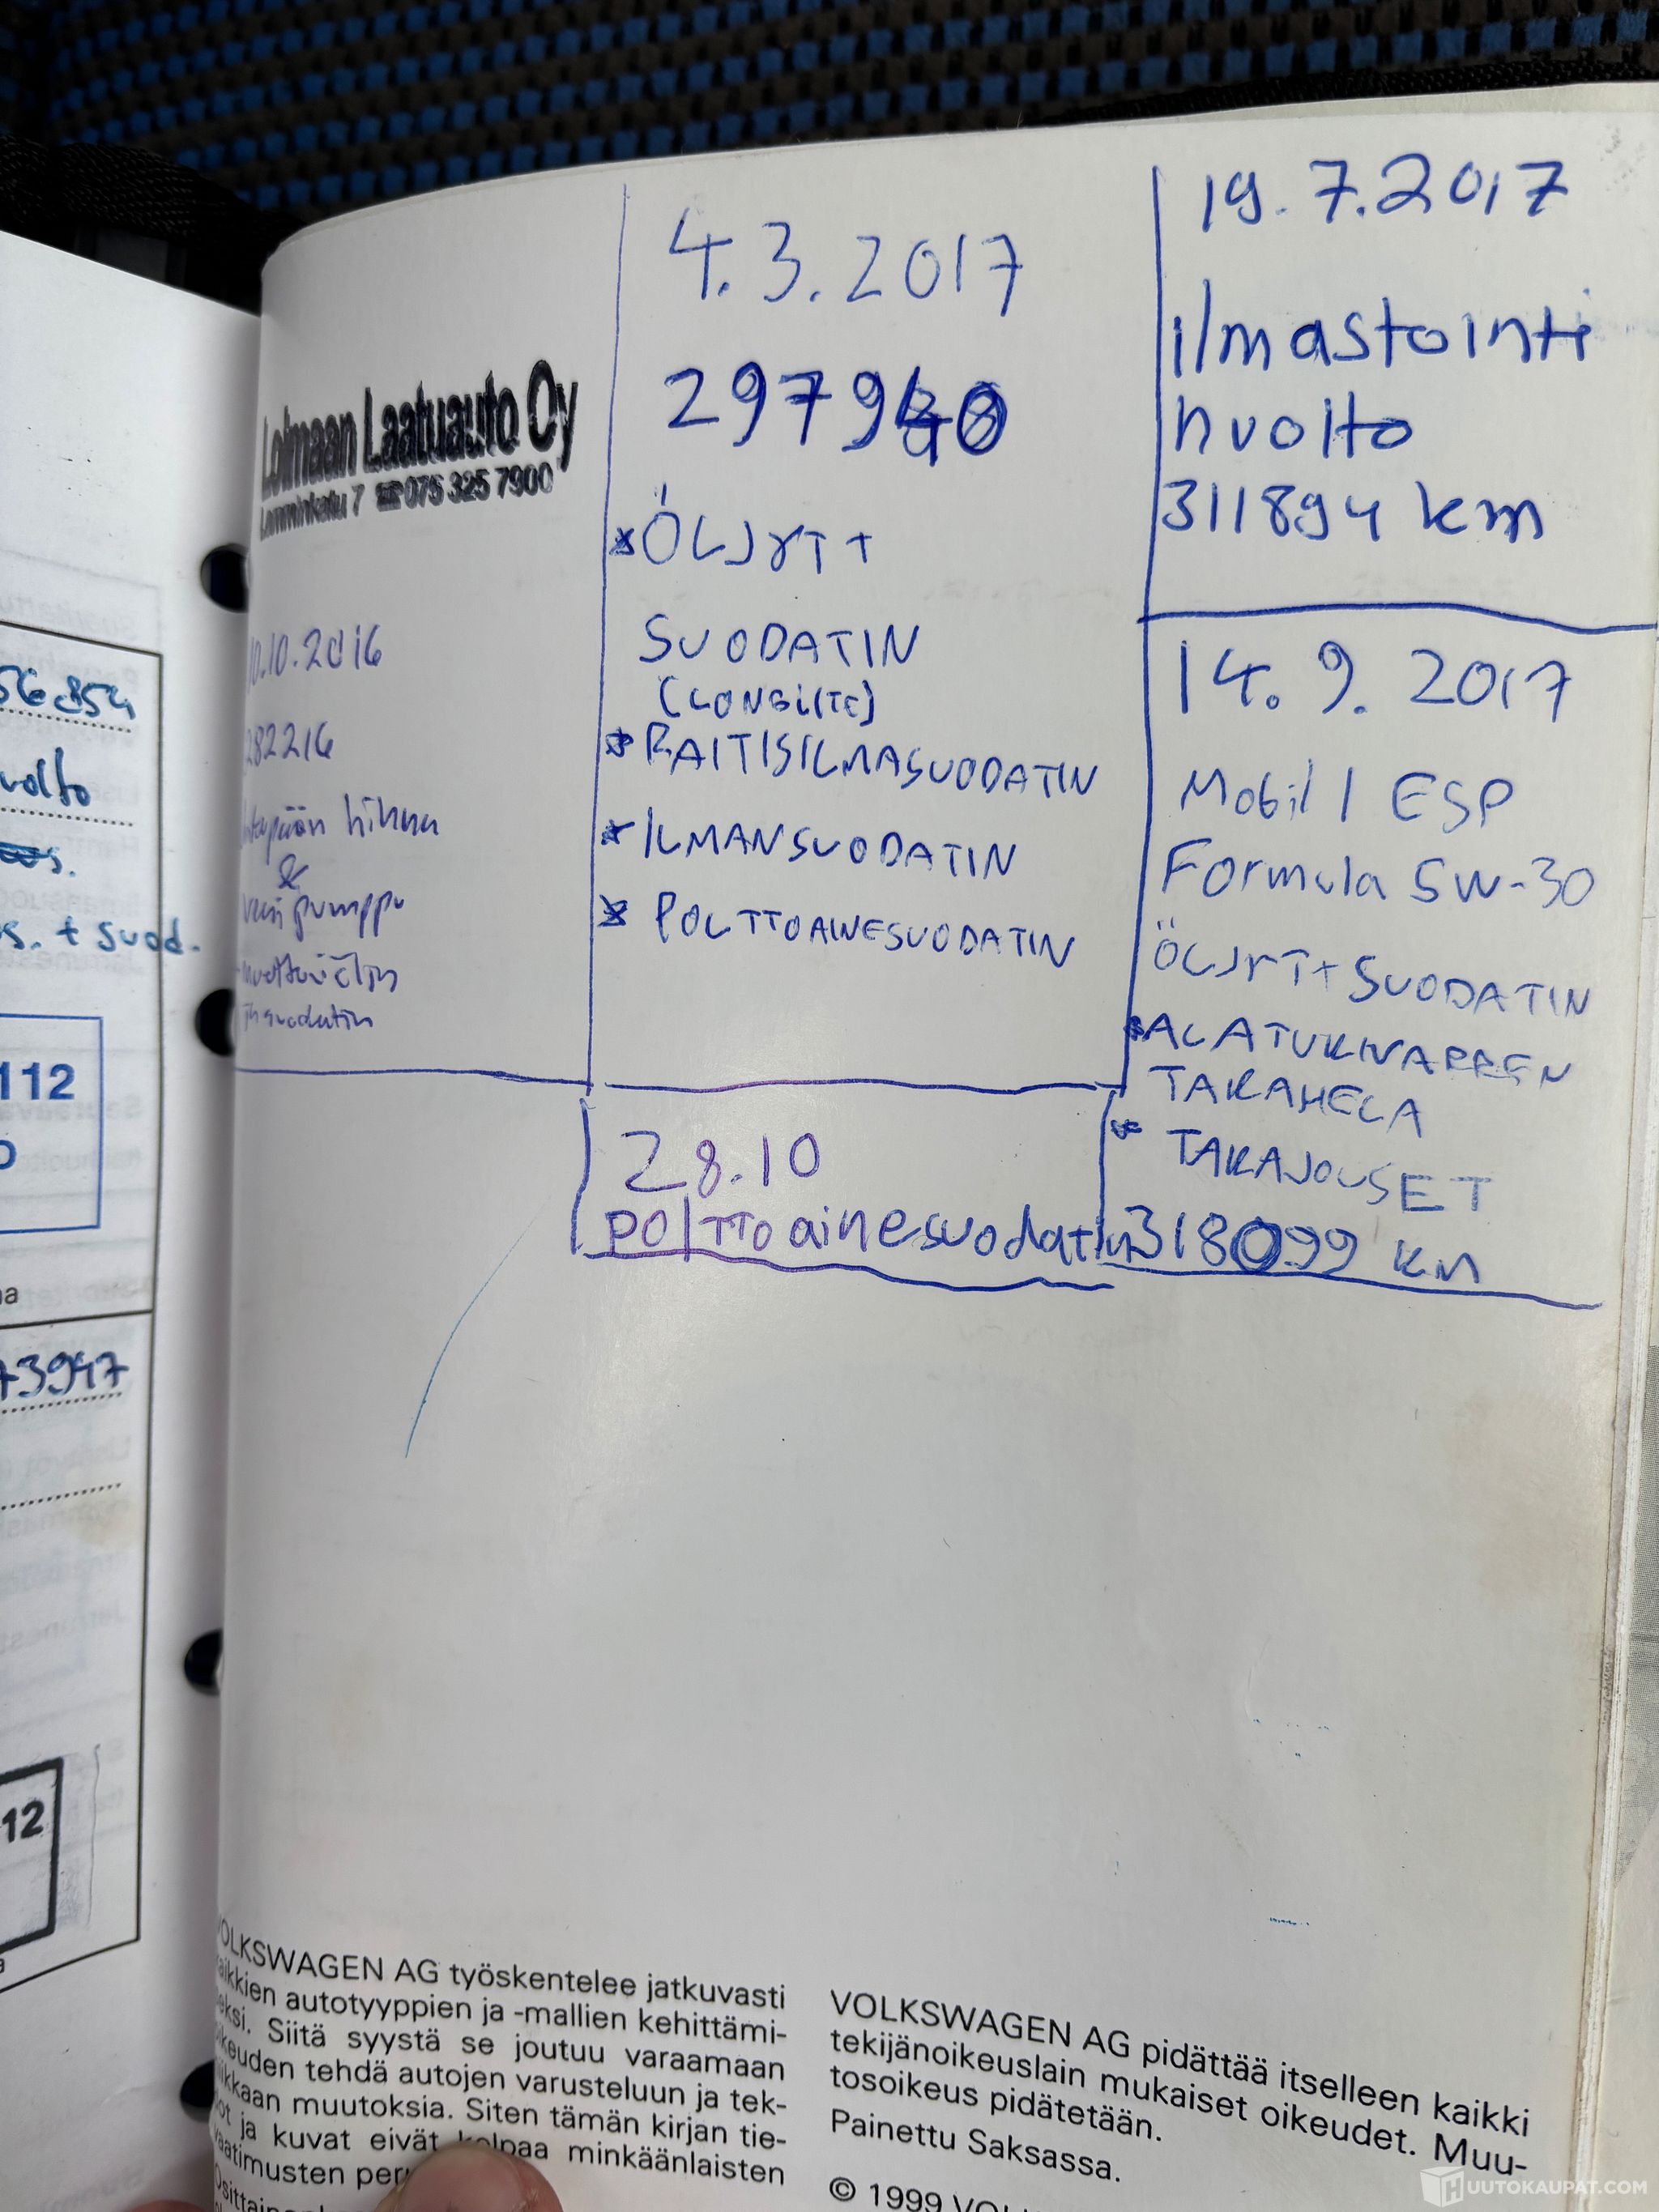 56.854
s. + suod.
112
73947
12
Loimaan Laatuauto Oy
Lamminkatu 7 ☎ 075 325 7900
10.10.2016
282216
hihna
&
vesipumppu
moottoriöljy
4.3.2017
297940
* ÖLJYT +
SUODATIN
(LONGLIFE)
* RAITISILMASUODATIN
* ILMANSUODATIN
* POLTTOAINESUODATIN
28.10
polttoainesuodatin
19.7.2017
ilmastointi
huolto
311894 km
14.9.2017
Mobil 1 ESP
Formula 5W-30
ÖLJYT + SUODATIN
* ALATUKIVARREN
TAKAHELA
* TAKAJOUSET
318099 KM
VOLKSWAGEN AG työskentelee jatkuvasti
kaikkien autotyyppien ja -mallien kehittämi-
seksi. Siitä syystä se joutuu varaamaan
oikeuden tehdä autojen varusteluun ja tek-
niikkaan muutoksia. Siten tämän kirjan tie-
dot ja kuvat eivät kelpaa minkäänlaisten
vaatimusten
VOLKSWAGEN AG pidättää itselleen kaikki
tekijänoikeuslain mukaiset oikeudet. Muu-
tosoikeus pidätetään.
Painettu Saksassa.
© 1999
HUUTOKAUPAT.COM